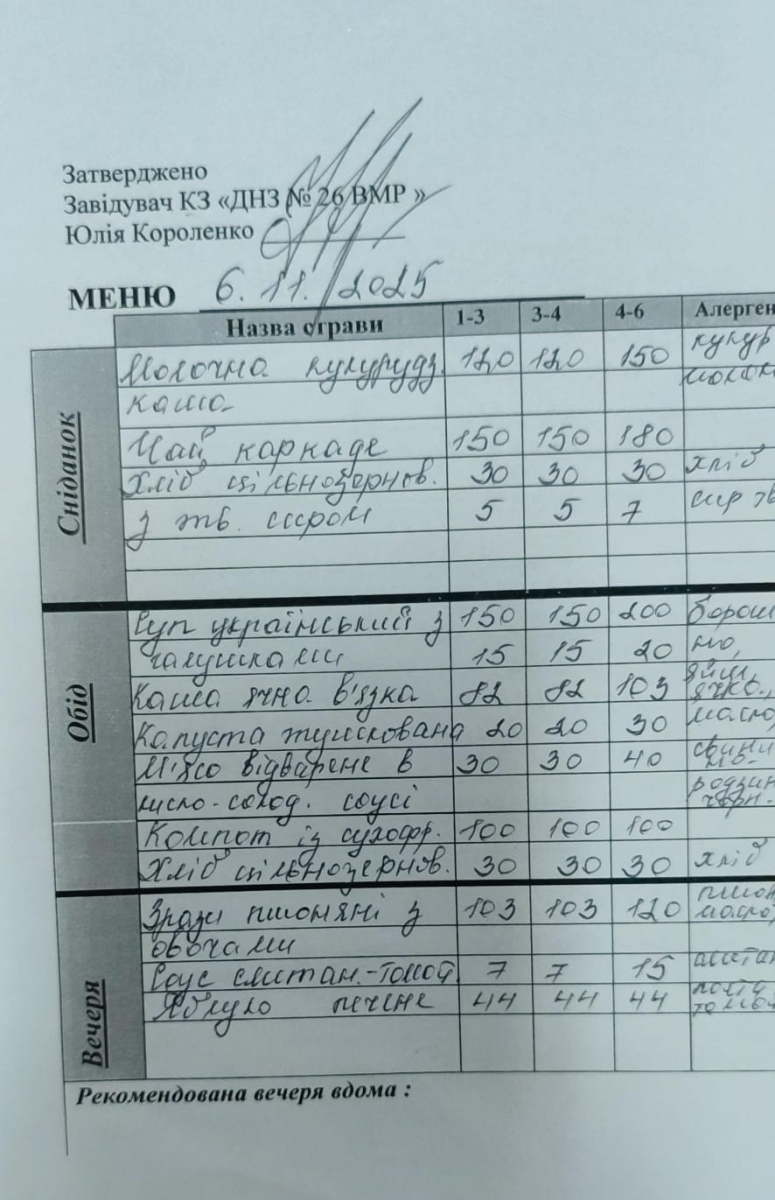 Затверджено
Завідувач КЗ «ДНЗ № 26 ВМР »
Юлія Короленко
МЕНЮ 6. 11. 2025
Назва страви 1-3 3-4 4-6 Алерген
Сніданок
Молочна кукурудз. 120 120 150 кукур
каша молок
Чай каркаде 150 150 180
Хліб цільнозернов. 30 30 30 хліб
з тв. сиром 5 5 7 сир тв
Обід
Суп український з 150 150 200 борош
галушками 15 15 20 но,
Каша ячна в'язка 82 82 103 яйце, ячка,
Капуста тушкована 20 20 30 масло,
М'ясо відварене в 30 30 40 свини
кисло-солод. соусі родзин чорн-
Компот із сухофр. 100 100 100
Хліб цільнозернов. 30 30 30 хліб
Вечеря
Зрази пшоняні з 103 103 120 пшон, масло,
овочами
Соус сметан.-томат 7 7 15 сметан
Яблуко печене 44 44 44
Рекомендована вечеря вдома :